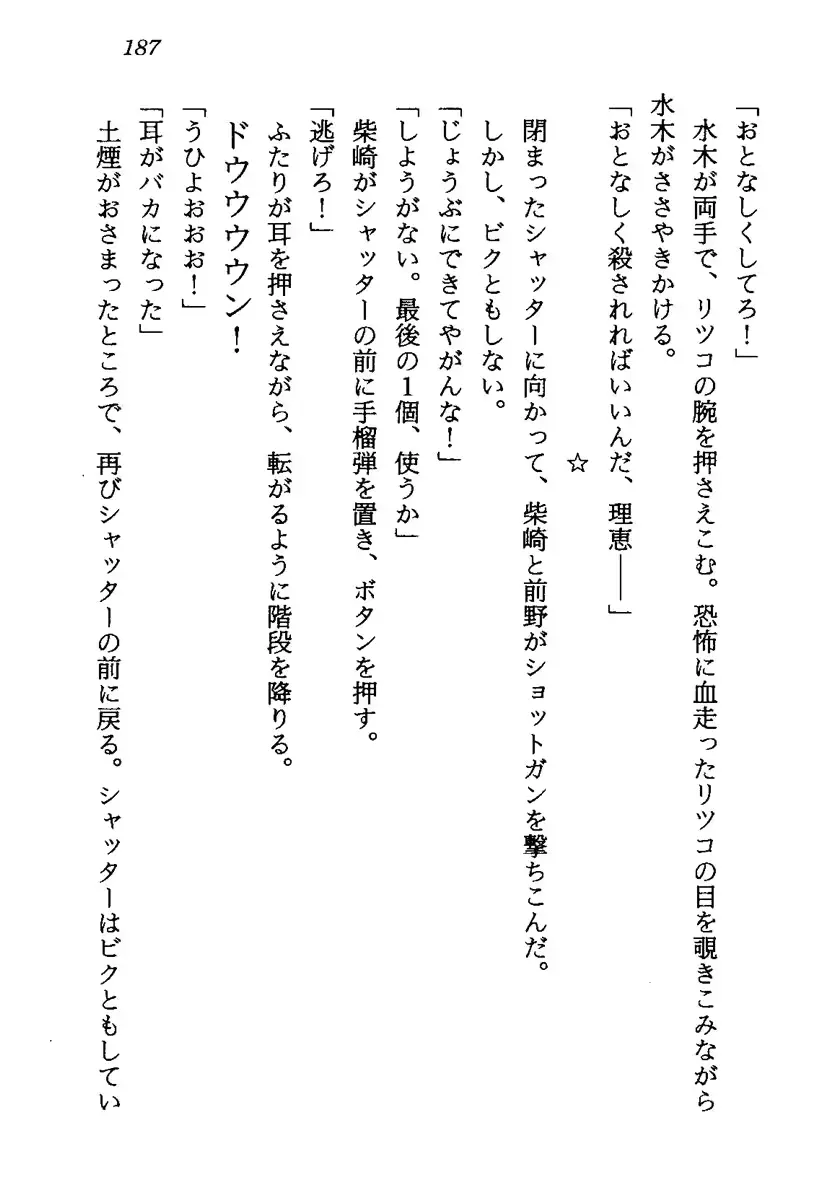 187
「おとなしくしてろ！」
水木が両手で、リツコの腕を押さえこむ。恐怖に血走ったリツコの目を覗きこみながら
水木がささやきかける。
「おとなしく殺されればいいんだ、理恵――」
☆
閉まったシャッターに向かって、柴崎と前野がショットガンを撃ちこんだ。
しかし、ビクともしない。
「じょうぶにできてやがんな！」
「しようがない。最後の1個、使うか」
柴崎がシャッターの前に手榴弾を置き、ボタンを押す。
「逃げろ！」
ふたりが耳を押さえながら、転がるように階段を降りる。
ドウウウウン！
「うひよおおお！」
「耳がバカになった」
土煙がおさまったところで、再びシャッターの前に戻る。シャッターはビクともしてい